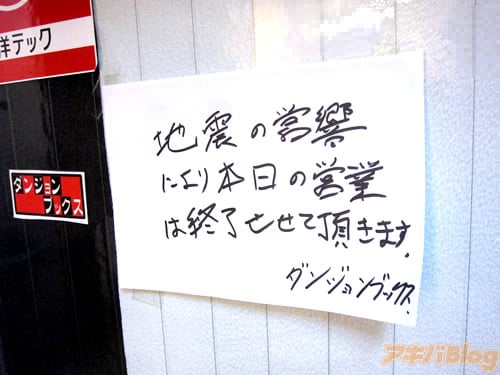 洋テック
ダンジョン
ブックス
地震の営響
により本日の営業
は終了させて頂きます.
ダンジョンブックス.
アキバBlog